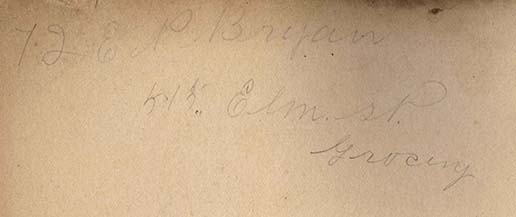 72 E P. Bryan
515. Elm. St.
Grocery